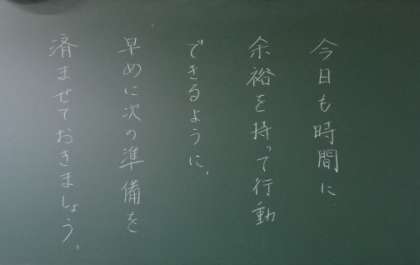 今日も時間に
余裕を持って行動
できるように、
早めに次の準備を
済ませておきましょう。